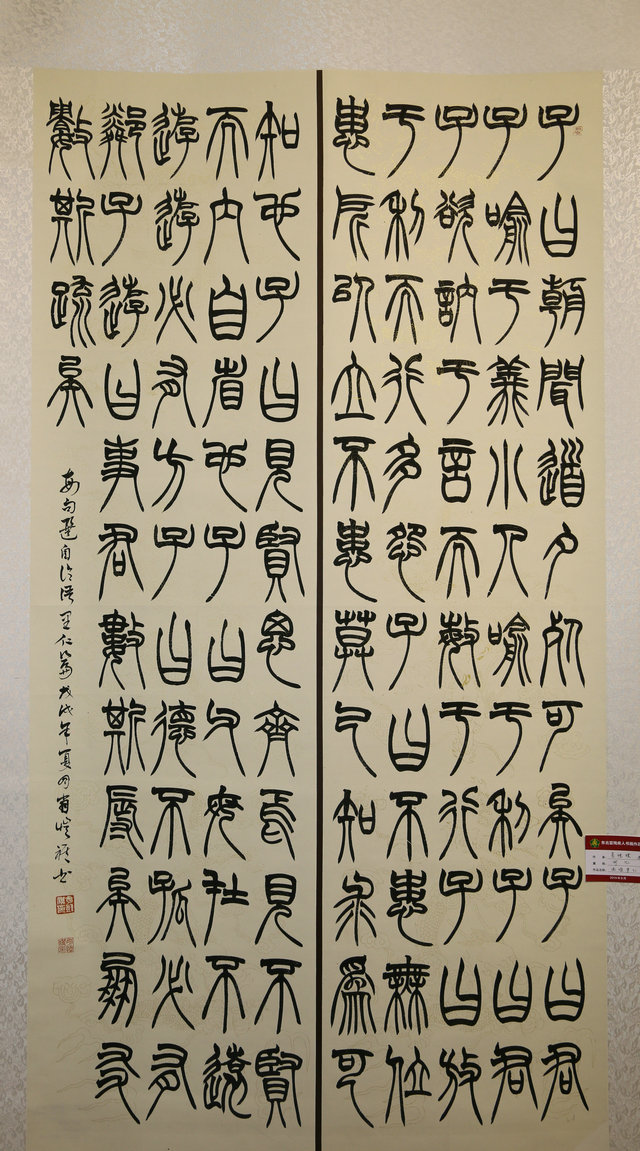 子曰朝聞道夕死可矣子曰君
子喻于義小人喻于利子曰君
子欲訥于言而敏于行子曰放
于利而行多怨子曰不患無位
患所以立不患莫己知求爲可
知也子曰見賢思齊焉見不賢
而內自省也子曰父母在不遠
遊遊必有方子曰德不孤必有
鄰子遊曰事君數斯辱矣朋友
數斯疏矣
句選自論語里仁篇戊戌年夏月